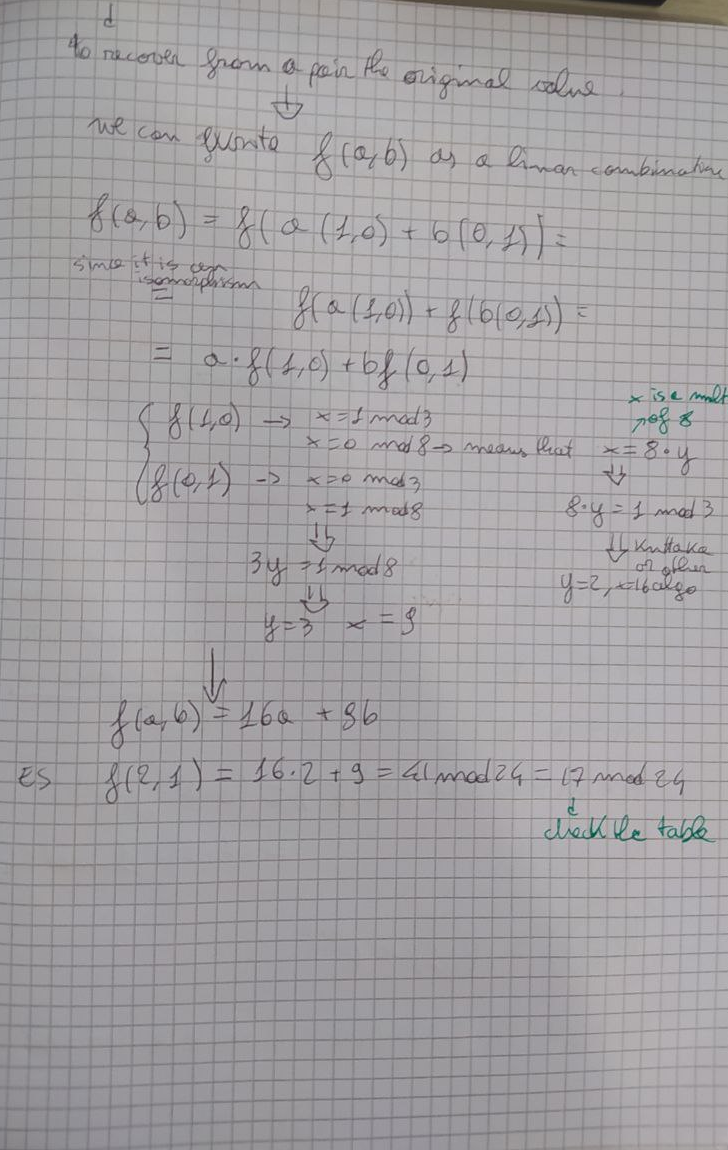 to recover from a pair the original value.
we can rewrite f(a,b) as a linear combination
f(a,b) = f(a(1,0) + b(0,1)) =
since it is an
isomorphism
=
f(a(1,0)) + f(b(0,1)) =
= a·f(1,0) + bf(0,1)
f(1,0) → x=1 mod3
x=0 mod8 → means that x=8·y
x is a mult
of 8
f(0,1) → x=0 mod3
x=1 mod8
8·y=1 mod3
⇓ Kuttaka
or other
algo
y=2, x=16
3y=1mod8
y=3 x=9
f(a,b) = 16a + 9b
ES f(2,1) = 16·2+9 = 41mod24 = 17 mod 24
check the table